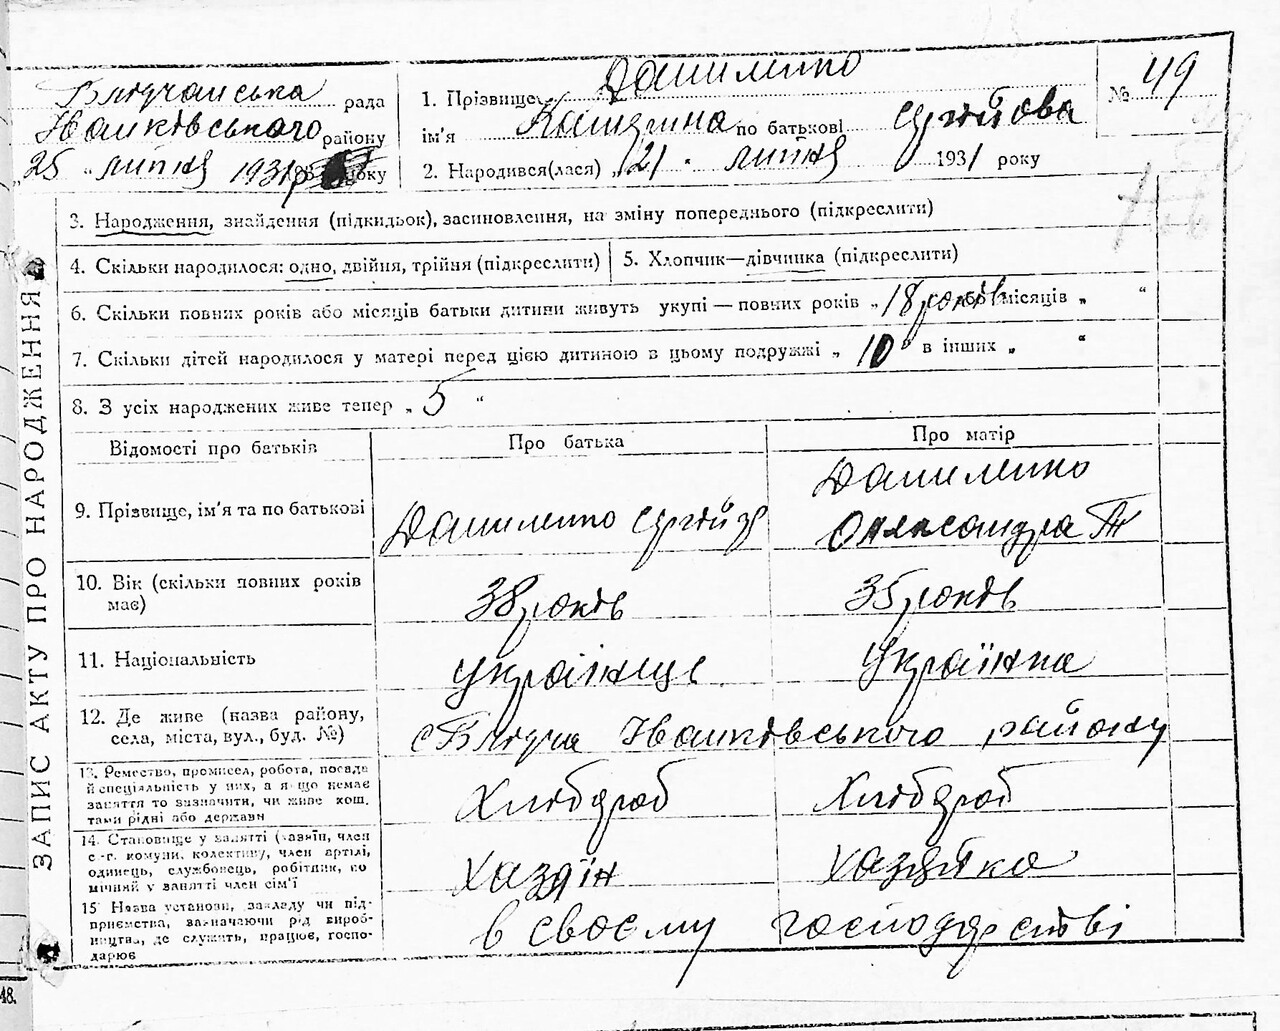 Блідчанська рада
Іванківського району
„25 „ липня 1931 р року
1. Прізвище Даниленко
ім'я Катерина по батькові Сергійовна
2. Народився(лася) „21 " липня 1931 року
№ 49
3. Народження, знайдення (підкидьок), засиновлення, на зміну попереднього (підкреслити)
4. Скільки народилося: одно, двійня, трійня (підкреслити)
5. Хлопчик—дівчинка (підкреслити)
6. Скільки повних років або місяців батьки дитини живуть укупі — повних років „ 18 років місяців „ "
7. Скільки дітей народилося у матері перед цією дитиною в цьому подружжі „ 10 " в інших „ "
8. З усіх народжених живе тепер „ 5 "
Відомості про батьків
Про батька
Про матір
9. Прізвище, ім'я та по батькові
Даниленко Сергій
Даниленко
Олександра Т
10. Вік (скільки повних років
має)
38 років
35 років
11. Національність
Українець
Українка
12. Де живе (назва району,
села, міста, вул., буд. №)
с Блідча Іванківського району
13. Ремество, промисел, робота, посада
й спеціяльність у них, а якщо немає
заняття то зазначити, чи живе кош-
тами рідні або держави
Хлібороб
Хлібороб
14. Становище у занятті (хазяїн, член
с.-г. комуни, колективу, член артілі,
одинець, службовець, робітник, по
мічний у занятті член сім'ї
Хазяїн
хазяйка
15 Назва установи, закладу чи під-
приємства, зазначаючи рід вироб-
ництва, де служить, працює, госпо-
дарює
в своєму господарстві
ЗАПИС АКТУ ПРО НАРОДЖЕННЯ
48.